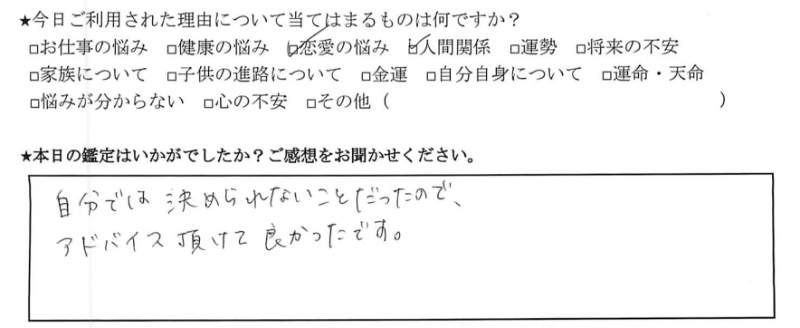 ★今日ご利用された理由について当てはまるものは何ですか？
□お仕事の悩み □健康の悩み ☑恋愛の悩み ☑人間関係 □運勢 □将来の不安
□家族について □子供の進路について □金運 □自分自身について □運命・天命
□悩みが分からない □心の不安 □その他（　　　　　　　　　　　　　　　　　　）
★本日の鑑定はいかがでしたか？ご感想をお聞かせください。
自分では決められないことだったので、
アドバイス頂けて良かったです。